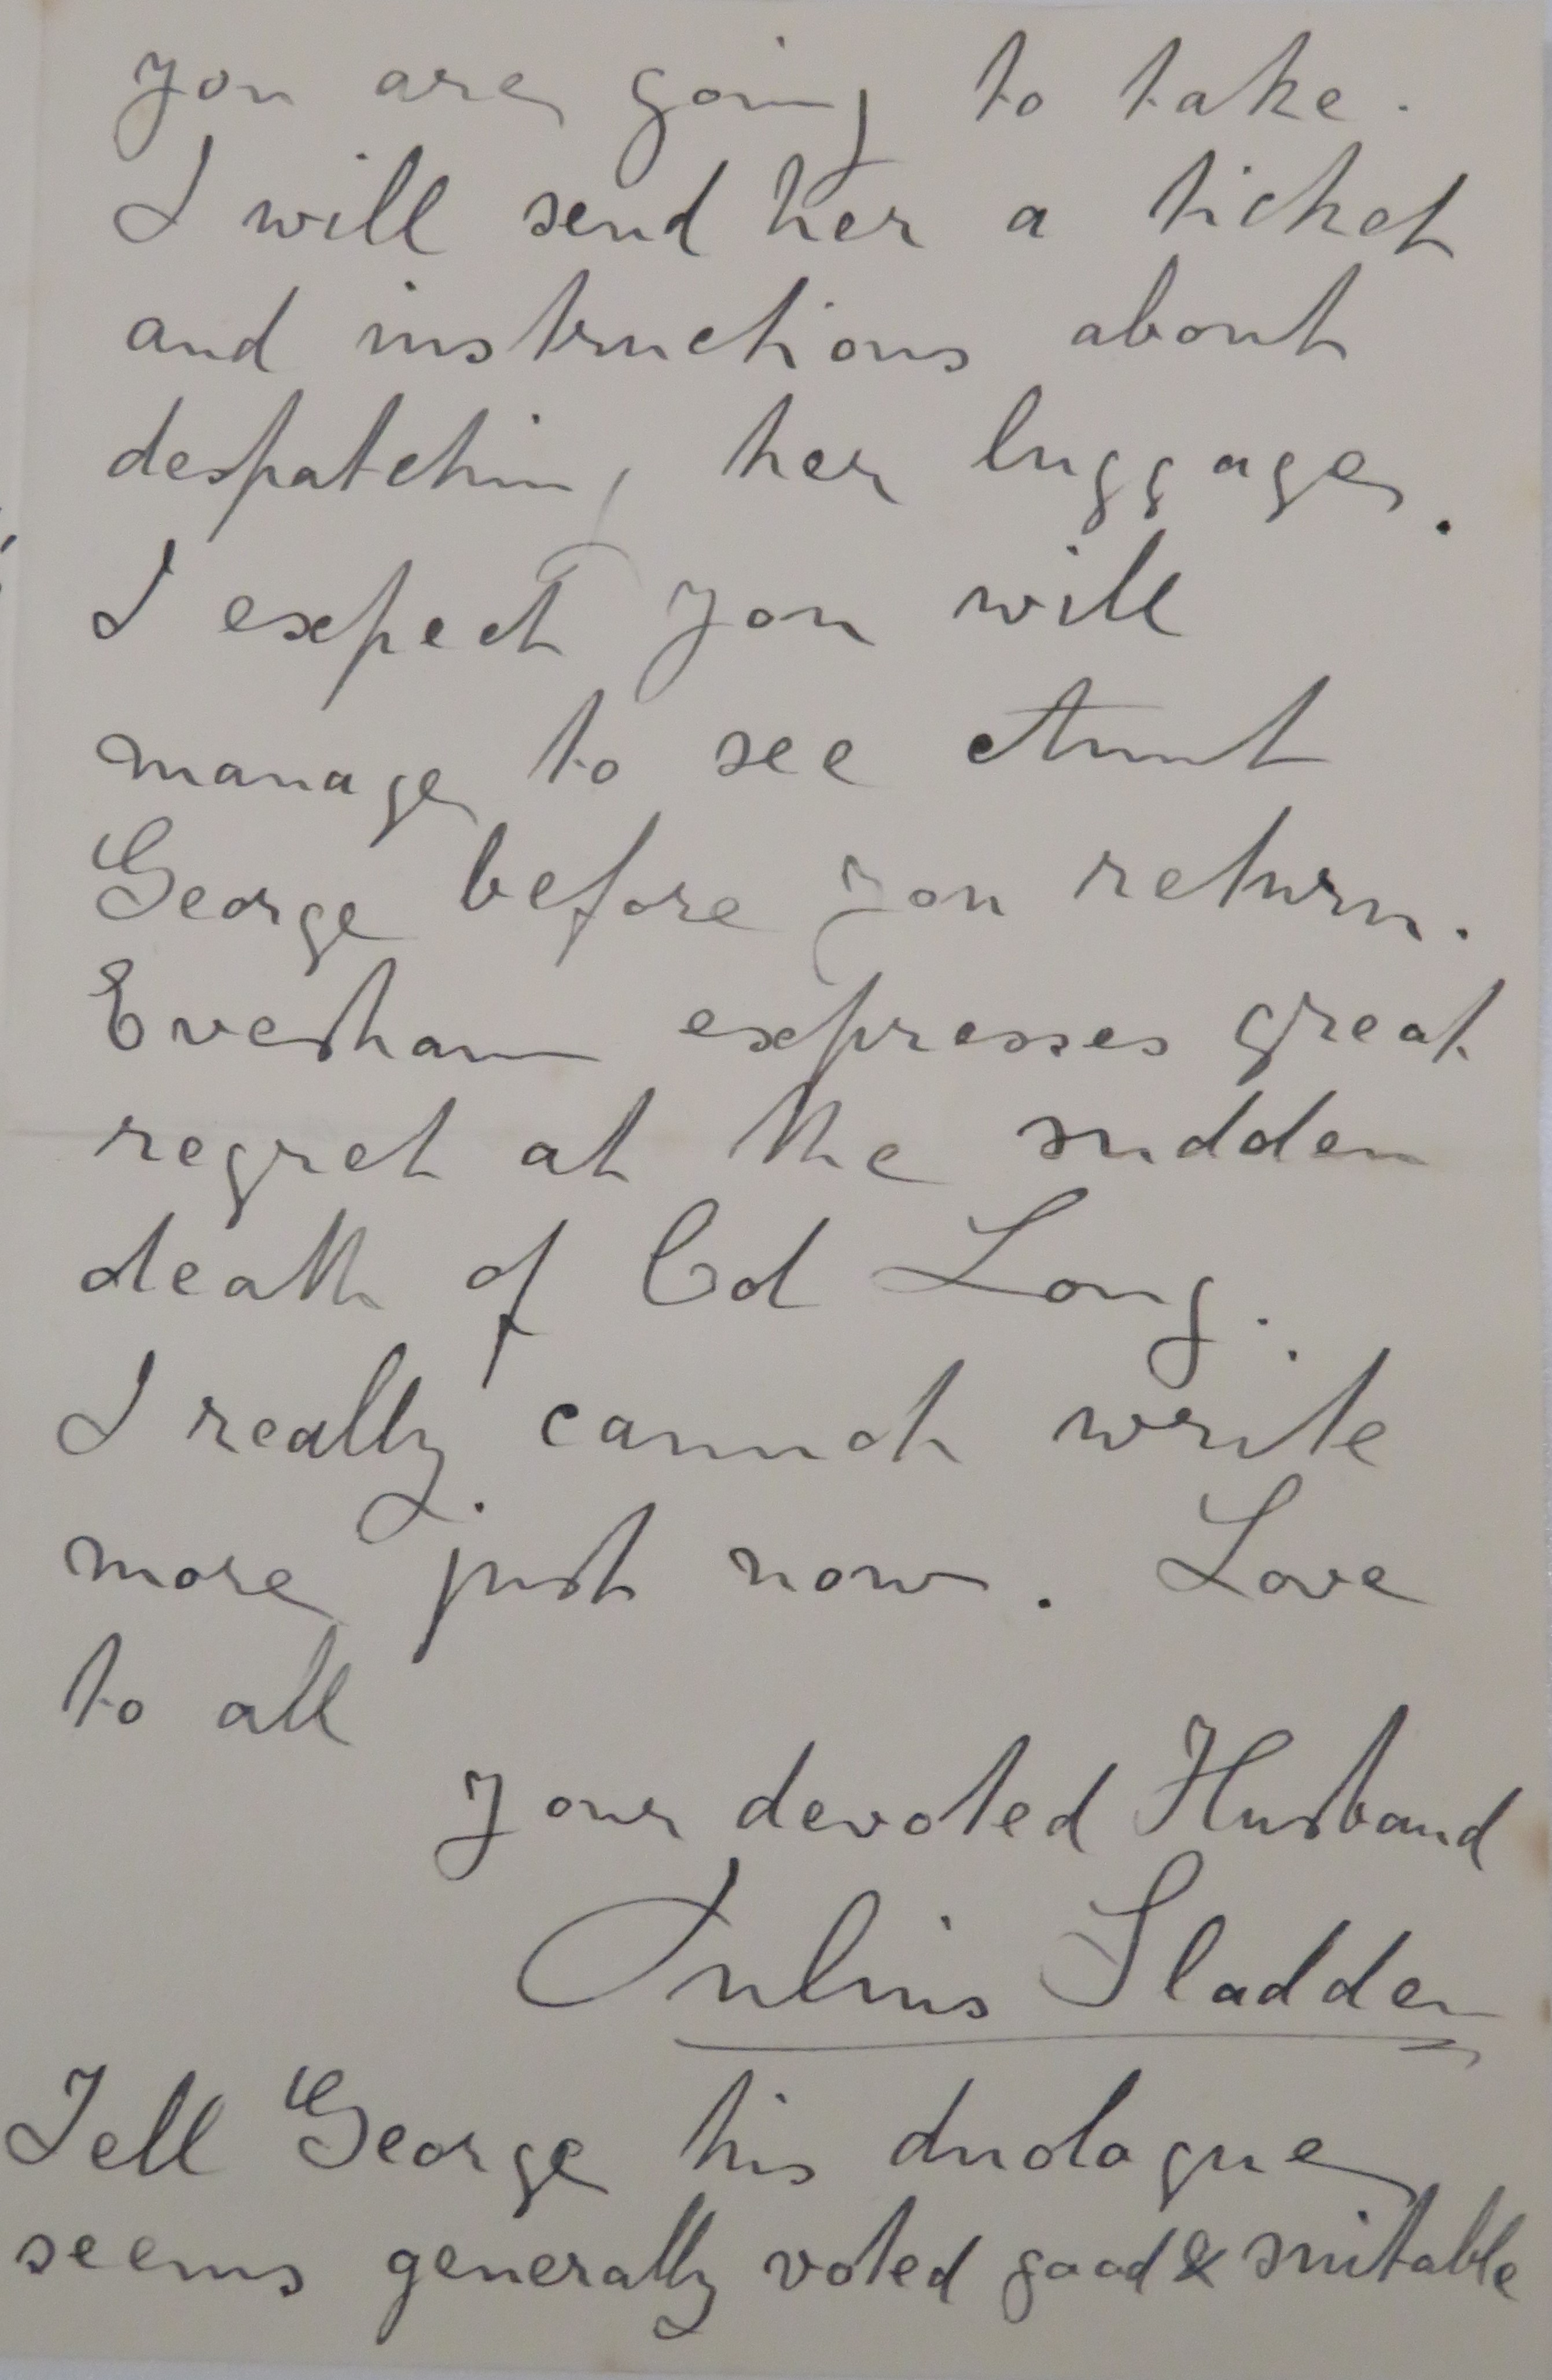 you are going to take.
I will send her a ticket
and instructions about
despatching her luggage.
I expect you will
manage to see Aunt
George before you return.
Evesham expresses great
regret at the sudden
death of Col Long.
I really cannot write
more just now. Love
to all
Your devoted Husband
Julius Sladden
Tell George his duologue
seems generally voted good & suitable